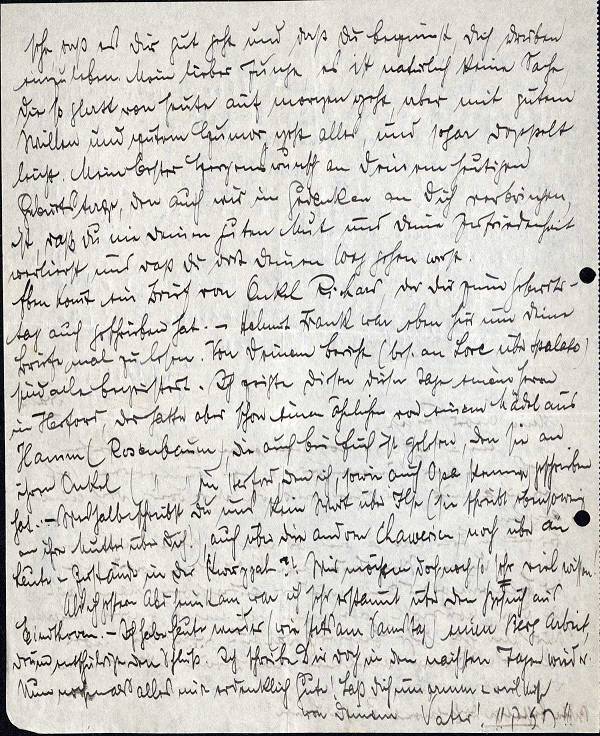 sehe daß es Dir gut geht und daß Du beginnst, Dich drüben
einzuleben. Mein lieber Junge es ist natürlich keine Sache,
die so glatt von heute auf morgen geht, aber mit gutem
Willen und gutem Humor geht alles, und sogar doppelt
leicht. Mein bester Herzenswunsch an Deinem heutigen
Geburtstage, den auch wir in Gedanken an Dich verbringen,
ist, daß Du nie Deinen guten Mut und Deine Zufriedenheit
verlierst und daß Du dort Deinen Weg gehen wirst.
Eben kommt ein Brief von Onkel Richard der Dir zum Geburts-
tag auch geschrieben hat. - Helmut Frank war eben hier um Deine
Briefe mal zu lesen. Von Deinem Bericht (bes. an Lore über
sind alle begeistert. Ich zeigte diesen dieser Tage einem Herrn
in Herford, der hatte aber schon einen ähnlichen von einem Mädel aus
Hamm (Rosenbaum) die auch bei Euch ist gelesen, den sie an
ihren Onkel ( " " in Herford den ich, sowie auch Opa kennen geschrieben
hat. - Weshalb schreibst Du uns kein Wort über Ilse (sie schreibt ebensowenig
an ihre Mutter über Dich) auch über die anderen Chawerim noch über die
Leute - Zustände in der ?! Wir möchten doch noch so sehr viel wissen.
Als ich gestern Abd heimkam war ich sehr erstaunt über den aus
. - Ich habe heute wieder (wie stets am Samstag) viel Arbeit,
drum entschuldige den Schluß. Ich schreibe Dir doch in den nächsten Tagen wieder.
Nun nochmals alles nur erdenklich Gute! Laß Dich umarmen &
von Deinem Vater!